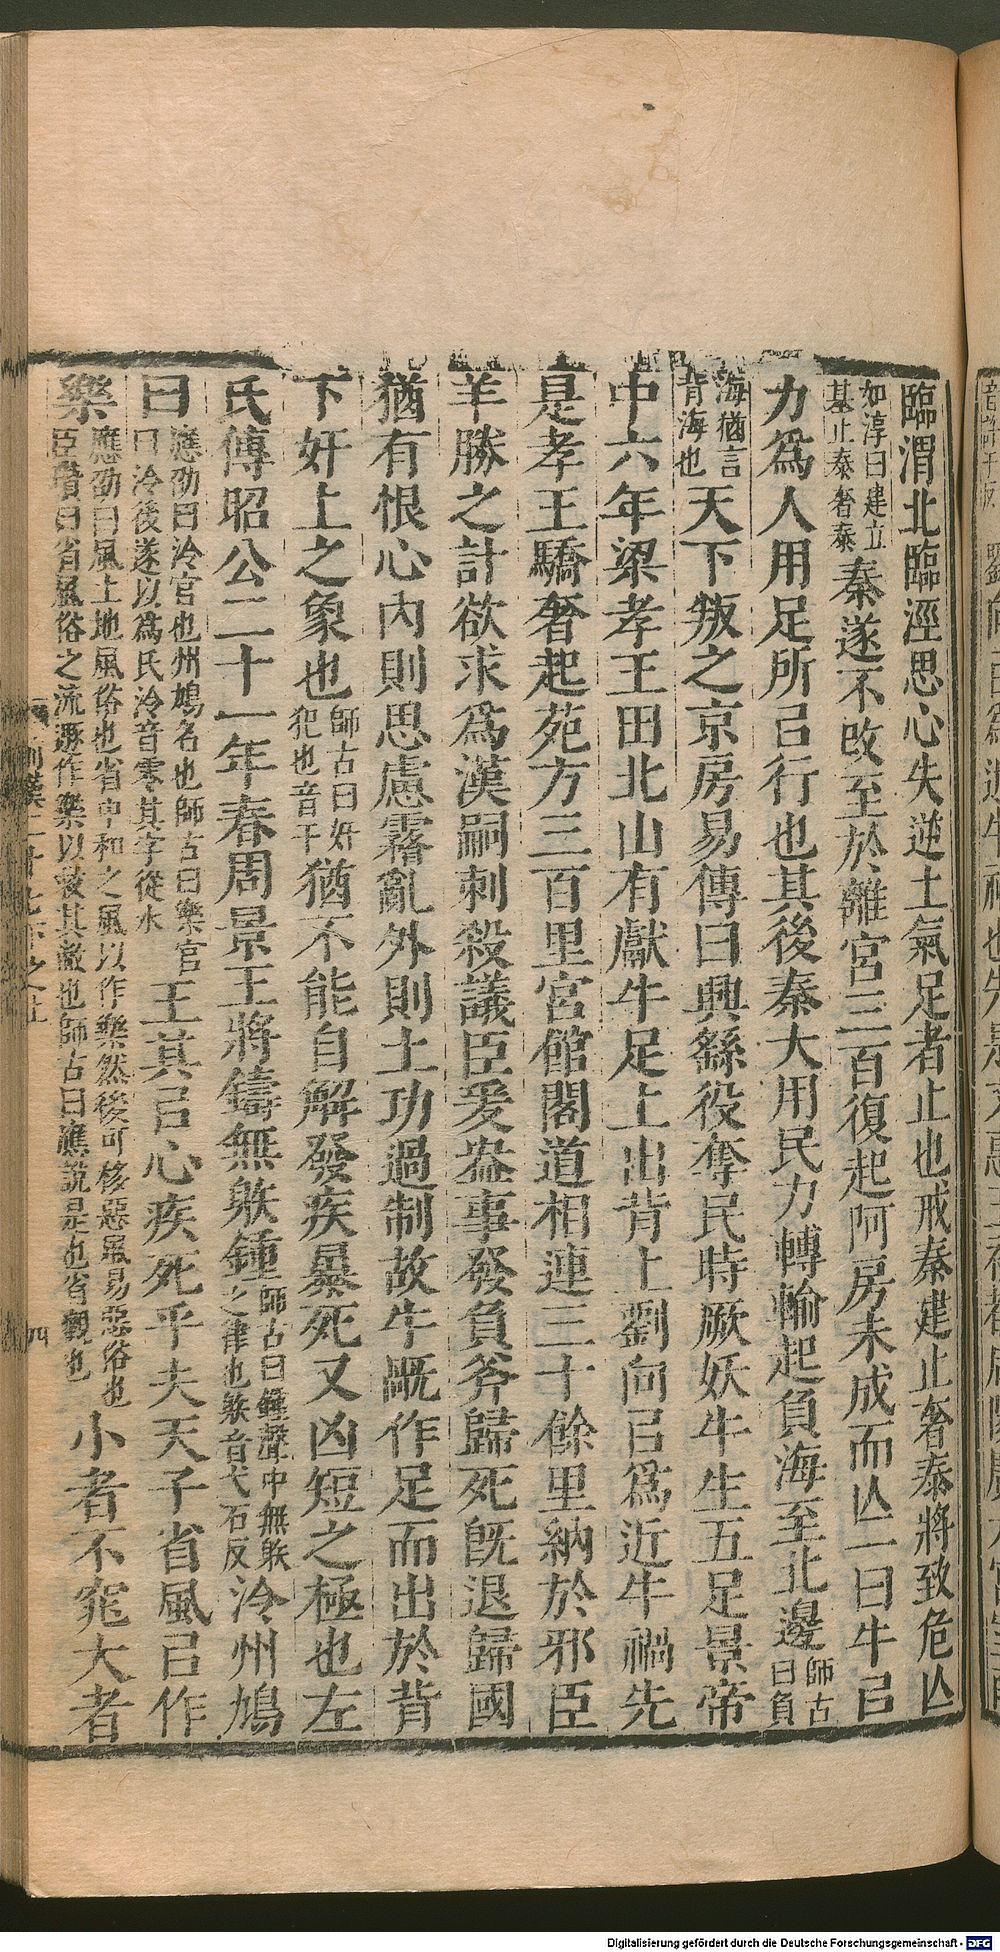 臨渭北臨涇思心失逆土氣足者止也戒秦建止奢泰將致危亾
如淳曰建立基止泰奢泰秦遂不改至於離宮三百復起阿房未成而亾一曰牛㠯
力爲人用足所㠯行也其後秦大用民力轉輸起負海至北邊師古曰負
海猶言背海也天下叛之京房易傳曰興繇役奪民時厥妖牛生五足景帝
中六年梁孝王田北山有獻牛足上出背上劉向㠯爲近牛禍先
是孝王驕奢起苑方三百里宮館閣道相連三十餘里納於邪臣
羊勝之計欲求爲漢嗣刺殺議臣爰盎事發負斧歸死旣退歸國
猶有恨心內則思慮霿亂外則土功過制故牛䄃作足而出於背
下奸上之象也師古曰奸犯也音干猶不能自解發疾暴死又凶短之極也左
氏傳昭公二十一年春周景王將鑄無射鍾師古曰鍾聲中無射之律也射音弋石反泠州鳩
曰應劭曰泠官也州鳩名也師古曰樂官曰泠後遂以爲氏泠音零其字從水王其㠯心疾死乎夫天子省風㠯作
樂應劭曰風土地風俗也省中和之風以作樂然後可移惡風易惡俗也臣瓚曰省風俗之流遯作樂以救其敝也師古曰應說是也省觀也小者不窕大者
Digitalisierung gefördert durch die Deutsche Forschungsgemeinschaft - DFG